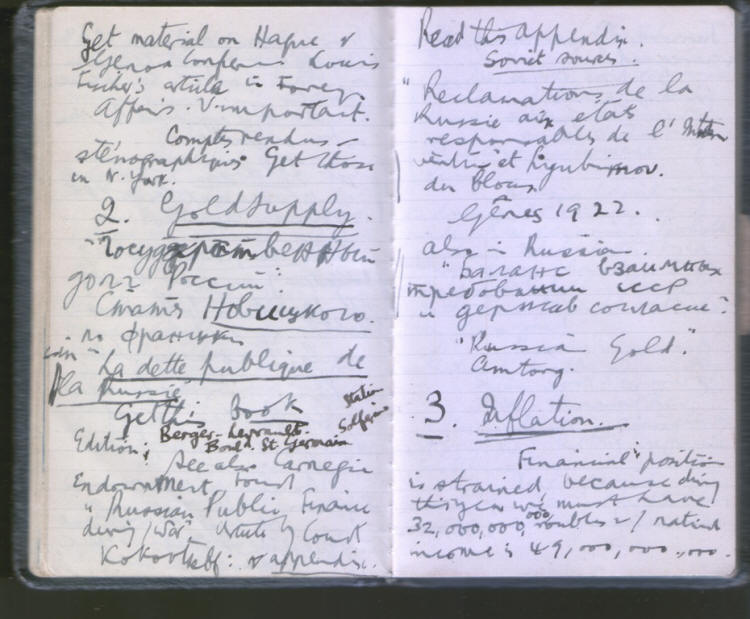 Get material on Hague &
Genoa Conferen. Louis
Fischer's article in Foreign
Affairs. V. important.
Comptes rendus
sténographiques Get those
in N. York.
2. Gold Supply.
"Государственный
долг России".
Статья Новицкого.
по французки
in "La dette publique de
la Russie"
Get this book
Station
Solferino
Berger-Levrault.
Edition: Bould. St. Germain
See also Carnegie
Endowment Fund
"Russian Public Finance
during War". Article by Count
Kokovtseff: & appendix.
Read this appendix.
Soviet sources.
"Reclamations de la
Russie aux états
responsables de l'Inter
vention et
du blocus
Gênes 1922.
also in Russian.
"Баланс взаимных
требований СССР
и держав согласия".
"Russian Gold".
Amtorg.
3. Inflation.
"Financial position
is strained because during
this year we must have
32,000,000,000 roubles of national
income is 49,000,000,000.